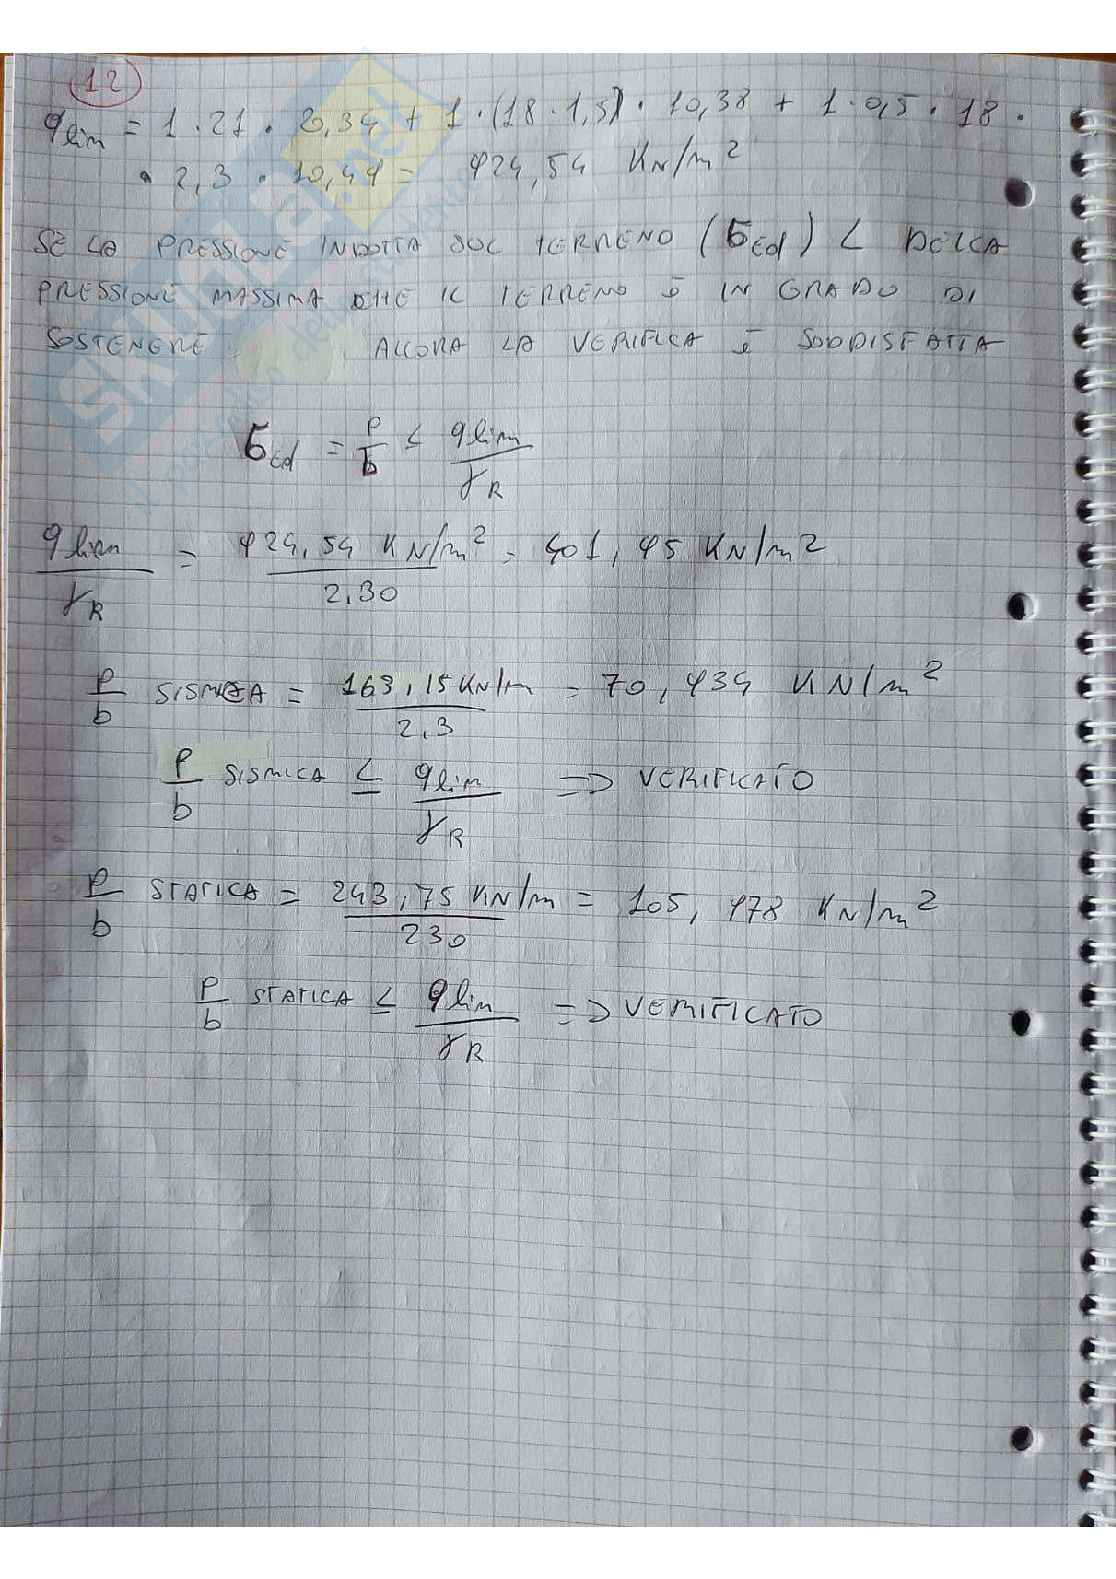 12
qlim = 1 · 21 · 20,34 + 1 · (18 · 1,5) · 10,38 + 1 · 0,5 · 18 ·
· 2,3 · 10,44 = 924,54 KN/m²
SE LA PRESSIONE INDOTTA SUL TERRENO (σEd) < DELLA
PRESSIONE MASSIMA CHE IL TERRENO È IN GRADO DI
SOSTENERE ALLORA LA VERIFICA È SODDISFATTA
σEd = P/b ≤ qlim/γR
qlim/γR = 924,54 KN/m² / 2,30 = 401,95 KN/m²
P/b SISMICA = 163,15 KN/m / 2,3 = 70,934 KN/m²
P/b SISMICA ≤ qlim/γR => VERIFICATO
P/b STATICA = 243,75 KN/m / 230 = 105,978 KN/m²
P/b STATICA ≤ qlim/γR => VERIFICATO
skuola.net